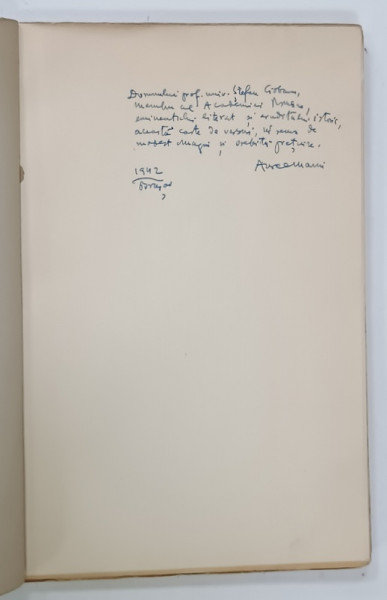 Domnului prof. univ. Ștefan Ciobanu,
membru al Academiei Române,
eminentului literat și eruditului istoric,
această carte de versuri, în semn de
modest omagiu și deosebită prețuire.
1942
Brașov